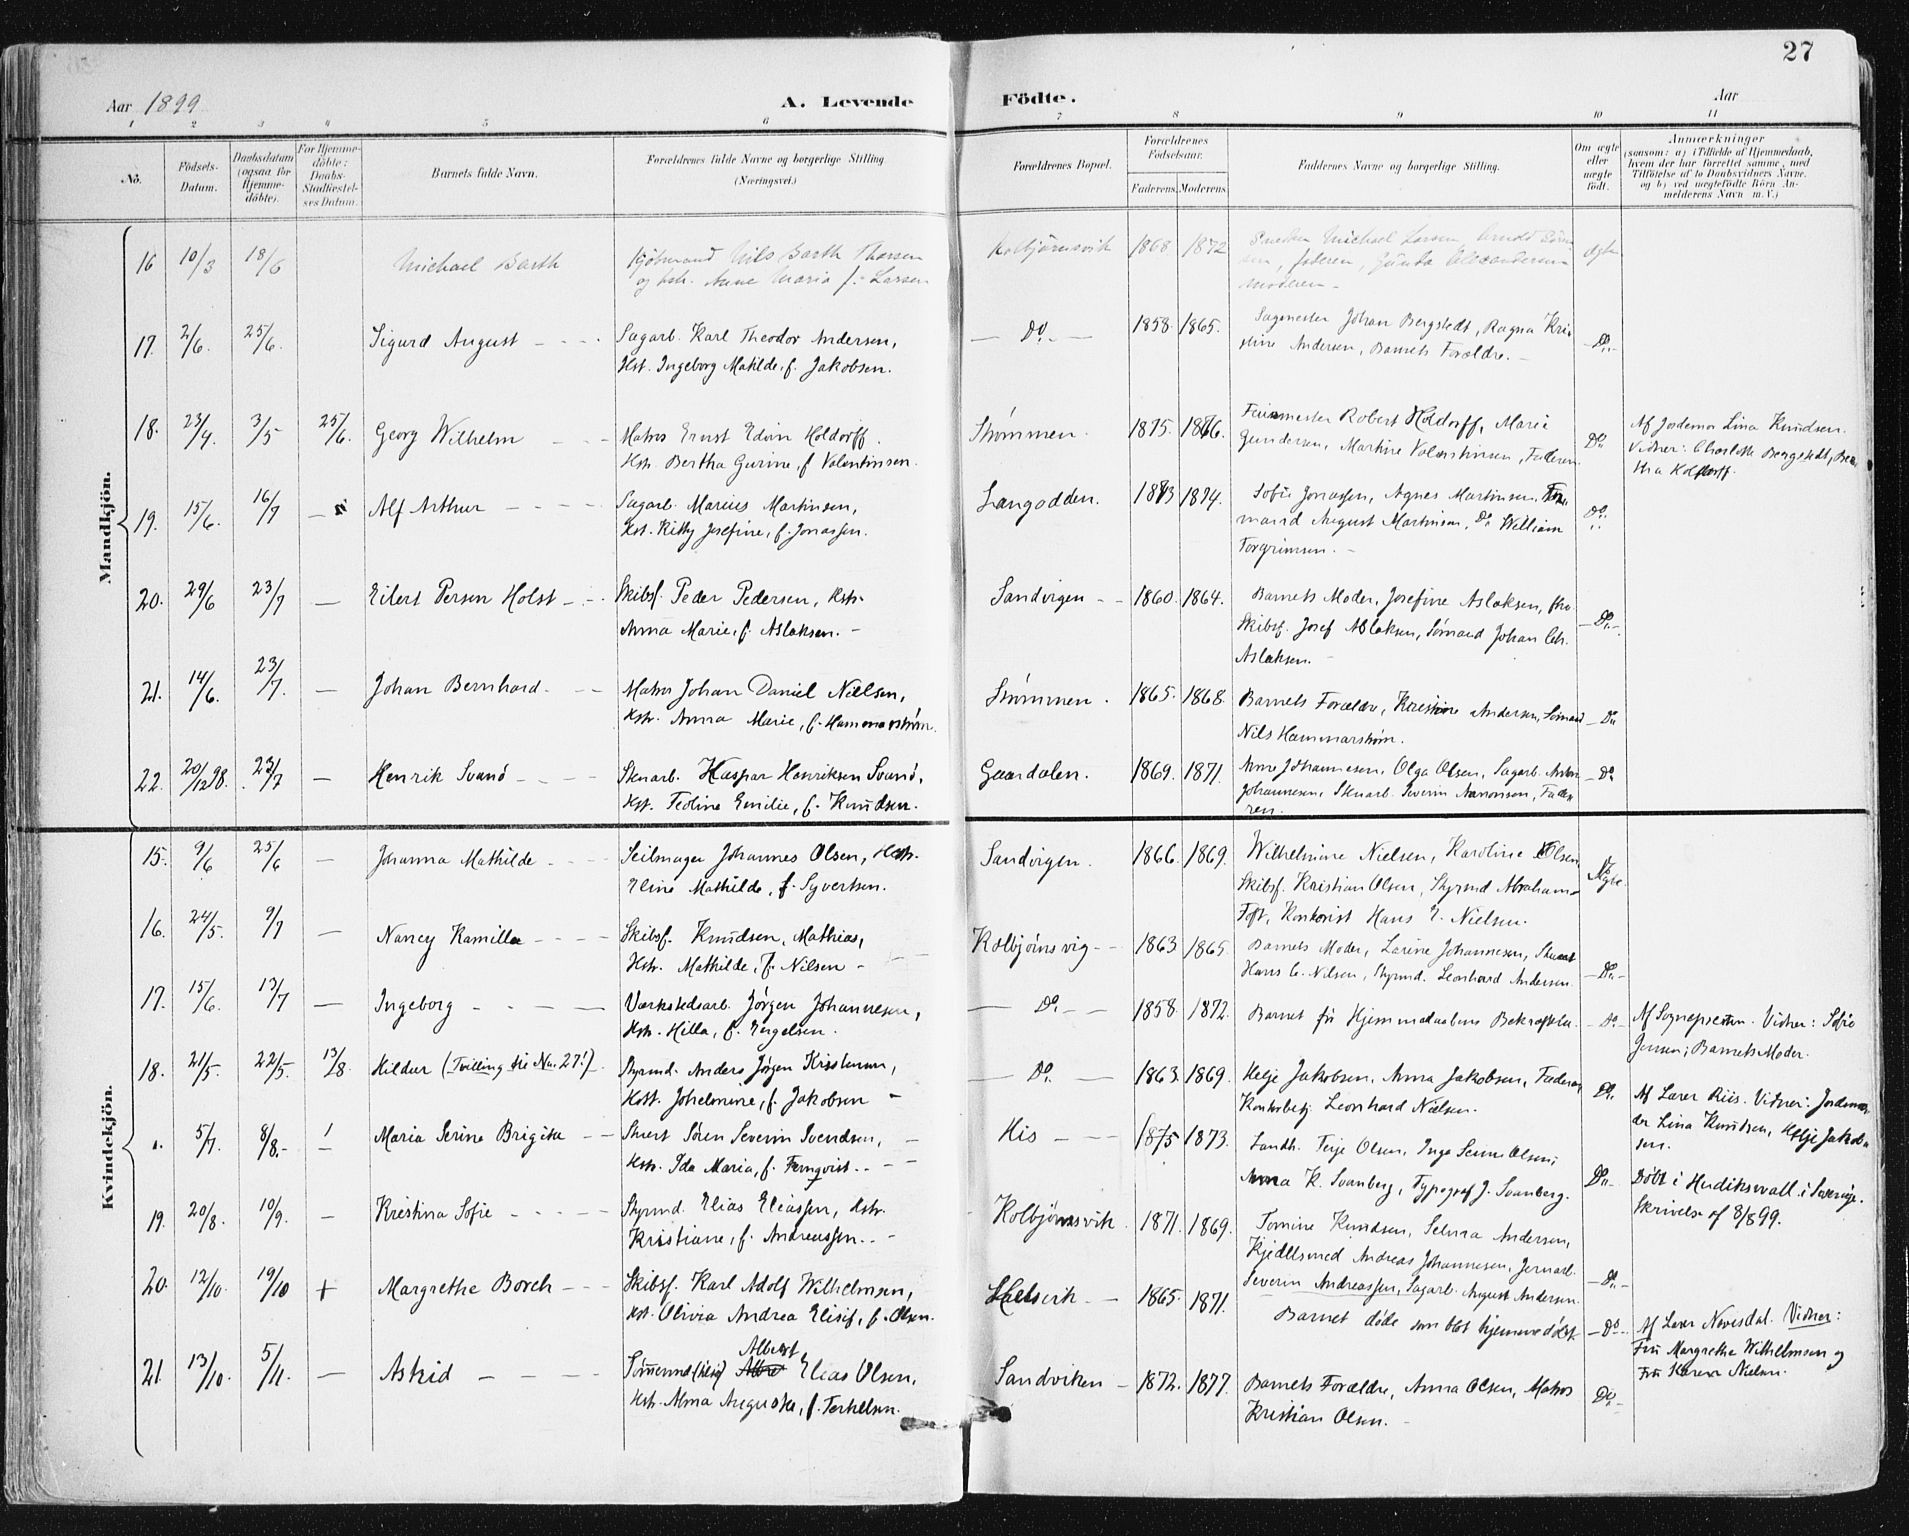 27
Aar 1899
A. Levende
Födte.
Aar
1 2 3 4 5 6 7 8 9 10 11
No.
Födsels-
Datum.
Daabsdatum
(ogsaa for
Hjemme-
döbte).
For Hjemme-
döbte:
Daabs-
Stadfæstel-
ses Datum.
Barnets fulde Navn.
Forældrenes fulde Navne og borgerlige Stilling
(Næringsvei.)
Forældrenes Bopæl.
Forældrenes
Födselsaar.
Faderens. Moderens.
Faddernes Navne og borgerlige Stilling.
Om ægte
eller
uægte
födt.
Anmærkninger
(saasom: a) i Tilfælde af Hjemmedaab,
hvem der har forrettet samme, med
Tilföielse af to Daabsvidners Navne.
og b) ved uægtefödte Börn An-
melderens Navn m. V.)
Mandkjön.
16 10/3 18/6 Michael Barth Kjøbmand Nils Barth Thorsen
og hstr. Anne Maria f. Larsen
Kolbjørnsvik 1868 1872 Smeden Michael Larsen, Arndt Søren
sen, faderen, Gunda Alexandersen
moderen - ægte
17. 2/6. 25/6. Sigurd August - - - Sagarb. Karl Theodor Andersen,
Hst. Ingeborg Matilde, f. Jakobsen.
— Do. — 1858. 1865. Sagmester Johan Bergstedt, Ragna Kri-
stine Andersen, Barnets Forældre. - — Do. -
18. 23/4. 3/5 25/6. Georg Wilhelm - - Matros Ernst Edvin Holdorff.
Hstr. Bertha Gurine, f. Valentinsen.
Strømmen. 1875. 1876. Feiermester Robert Holdorff, Marie
Gundersen, Martine Valentinsen, Faderen. Do.
Af Jordemor Lina Knudsen.
Vidner: Charlotte Bergstedt, Ber-
tha Holdorff.
19. 15/6. 16/7 — Alf Arthur - - - - Sagarb. Marius Martinsen,
Hst. Kitty Josefine, f. Jonassen.
Langodden. 1873 1874. Sofie Jonassen, Agnes Martinsen, Tøm-
mand August Martinsen, Do. William
Torgrimsen. - Do.
20. 29/6 23/7 — Eilert Persen Holst - - Skibsf. Peder Pedersen, Hstr.
Anna Marie, f. Aslaksen. -
Sandvigen - - 1860. 1864. Barnets Moder, Josefine Aslaksen, fhv.
Skibsf. Josef Aslaksen, Sømand Johan Chr.
Aslaksen. - — Do. -
21. 14/6. 23/7. — Johan Bernhard. - - Matros Johan Daniel Nielsen,
Hstr. Anna Marie, f. Hammarstrøm.
Strømmen . 1865. 1868. Barnets Forældre, Kristine Andersen, Sømand
Nils Hammarstrøm. — Do.
22. 20/12 98. 23/7 — Henrik Svanø - - - - Skruarb. Kaspar Henriksen Svanø,
Hst. Teoline Emilie, f. Knudsen.
Gaardalen. 1869. 1871. Anne Johannesen, Olga Olsen, Sagarb. Anton
Johannesen, Skruarb. Severin Aanonsen, Fade-
ren. — Do.
Kvindekjön.
15. 9/6 25/6 — Johanna Mathilde - - - Seilmager Johannes Olsen, Hstr.
Eline Mathilde, f. Syvertsen.
Sandvigen. 1866. 1869. Wilhelmine Nielsen, Karoline Olsen,
Skibsf. Kristian Olsen, Styrmd Abraham
Toft, Kontorist Hans E. Nielsen. Ægte.
16. 24/5. 9/7 — Nancy Kamilla - - - - Skibsf. Knudsen, Mathias,
Hstr. Mathilde, f. Nilsen -
Kolbjørnsvig - - 1863 1865. Barnets Moder, Larine Johannesen,
Hans C. Nilsen, Styrmd. Leonhard Andersen. — Do. -
17. 15/6. 13/7 — Ingeborg - - - — Værkstedsarb. Jørgen Johannesen,
Hstr. Hilla, f. Engelsen.
— Do. — - 1858. 1872. Barnet før Hjemmedaabens Bekræftelse. — Do. —
Af Sognepresten. Vidner: Sofie
Jensen; Barnets Moder.
18. 21/5. 22/5. 13/8 Hildur (Tvilling til No. 27!) Styrmd. Anders Jørgen Kristensen,
Hst. Johelmine, f. Jakobsen -
— Do. — 1863. 1869. Helje Jakobsen, Anna Jakobsen, Faderen,
Kontorbetj. Leonhard Nielsen. Do.
Af Lærer Riis. Vidner: Jordemo-
der Lina Knudsen, Helje Jakob-
sen.
5/7. 8/8. - Maria Serine Brigitta — - Stuert Søren Severin Svendsen, -
Hst. Ida Maria, f. Fernqvist. - - -
His - - - 1875 1873. Landh. Terje Olsen, Inga Serine Olsen,
Anna K. Svanberg, Typograf J. Svanberg. Do. -
Døbt i Hudiksvall i Sverige.
Skrivelse af 8/8 99.
19. 20/8. 10/9. — Kristina Sofie - - - - Styrmd. Elias Eliassen, Hstr.
Kristiane, f. Andreassen. - -
Kolbjørnsvik. 1871. 1869. Tomine Knudsen, Selma Andersen,
Kjedelsmed Andreas Johannesen, Jernarb.
Severin Andreassen, Sagarb. August Andersen. — Do. -
20. 12/10. 19/10 + Margrethe Borch - - - Skibsf. Karl Adolf Wilhelmsen,
Hst. Olivia Andrea Elisif, f. Olsen.
- 1865. 1871. Barnet døde som blot hjemmedøbt - Do -
Af Lærer Nævesdal. Vidner:
Fru Margrethe Wilhelmsen og
Fru Karen Nielsen.
21. 13/10. 5/11. — Astrid - - - — Tømmermd (Skibs) Albert Elias Olsen,
Hstr. Alma Auguste, f. Terkelsen.
Sandviken - 1872. 1877. Barnets Forældre, Anna Olsen, Matros
Kristian Olsen. - Do. -